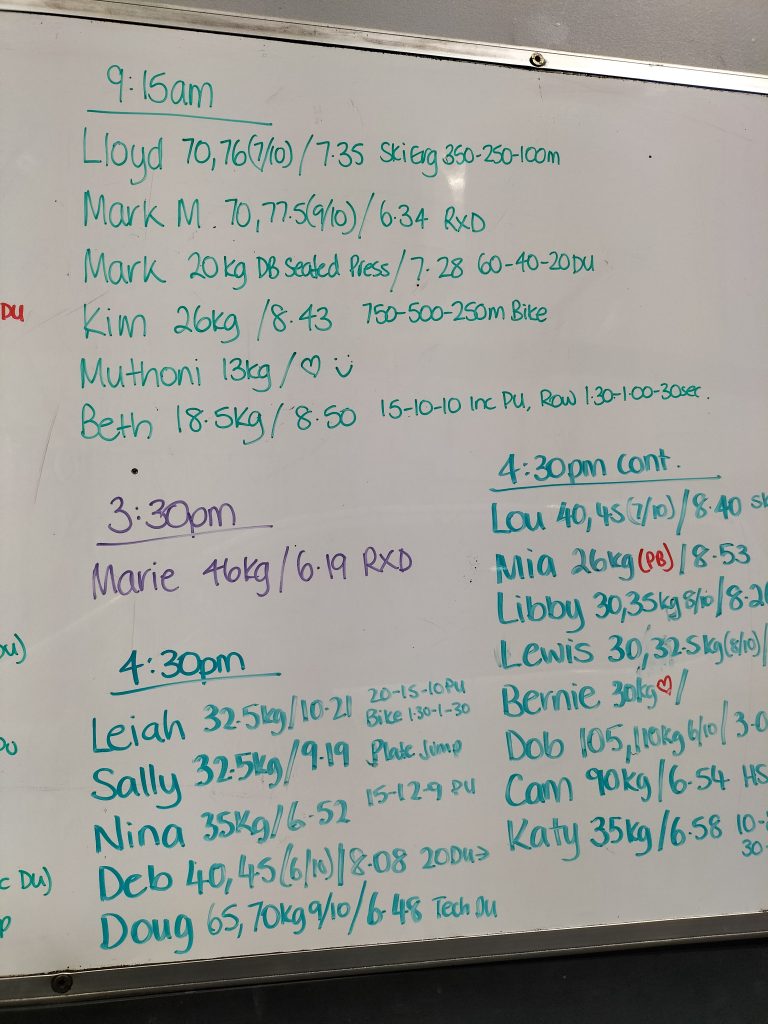 9:15am
Lloyd 70,76(7/10)/7.35 SkiErg 350-250-100m
Mark M. 70,77.5(9/10)/6.34 RXD
Mark 20kg DB Seated Press/7.28 60-40-20DU
Kim 26kg/8.43 750-500-250m Bike
Muthoni 13kg/♡
Beth 18.5kg/8.50 15-10-10 Inc PU, Row 1.30-1.00-30sec.
3:30pm
Marie 46kg/6.19 RXD
4:30pm
Leiah 32.5kg/10.21 20-15-10PU
Bike 1.30-1-30
Sally 32.5kg/9.19 Plate Jump
Nina 35kg/6.52 15-12-9 PU
Deb 40,45(6/10)/8.08 20DU→
Doug 65,70kg 9/10/6.48 Tech DU
4:30pm Cont.
Lou 40,45(7/10)/8.40 Sk
Mia 26kg(PB)/8.53
Libby 30,35kg 8/10/8.2
Lewis 30,32.5kg(8/10)/
Bernie 30kg♡/
Dob 105,110kg 6/10/3.0
Cam 90kg/6.54 HS
Katy 35kg/6.58 10-
30-
DU
DU)
c DU)